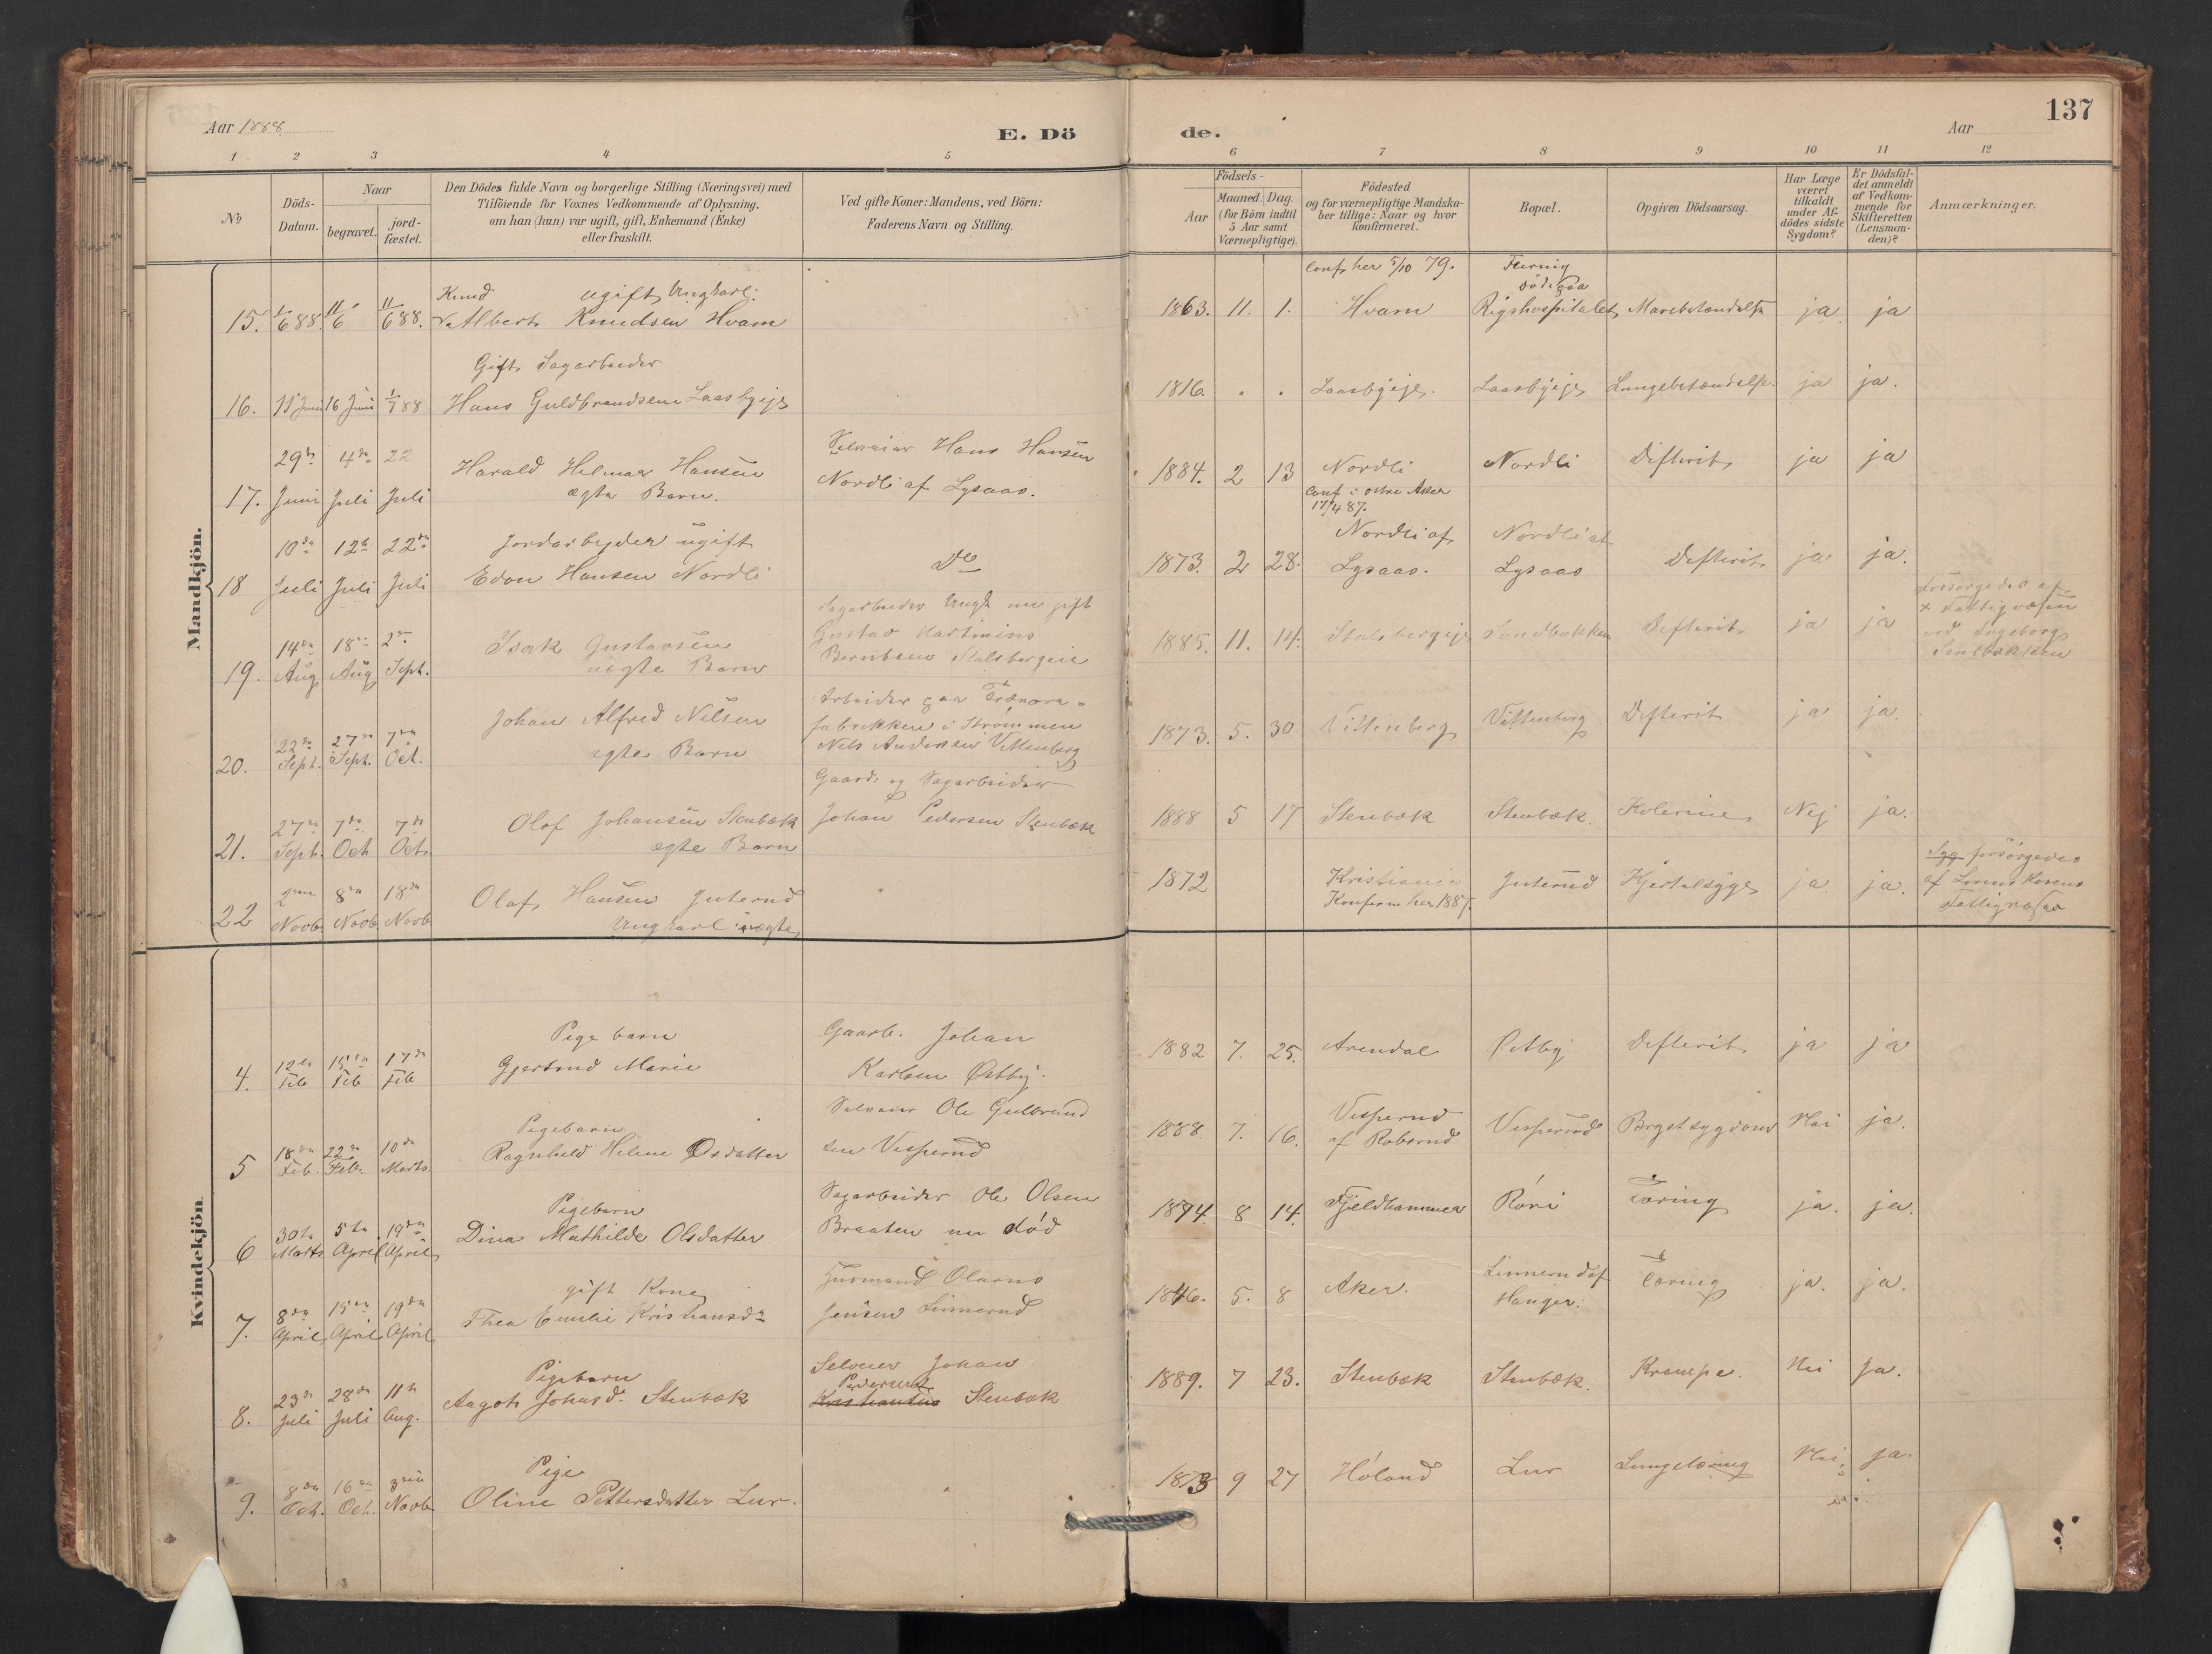 Aar 1888
E. Dö
de.
Aar
137
1 2 3 4 5 6 7 8 9 10 11 12
№
Döds-
Datum.
Naar
begravet.
jord-
fæstet.
Den Dödes fulde Navn og borgerlige Stilling (Næringsvei) med
Tilföiende for Voxnes Vedkommende af Oplysning,
om han (hun) var ugift, gift, Enkemand (Enke)
eller fraskilt.
Ved gifte Koner: Mandens, ved Börn:
Faderens Navn og Stilling.
Födsels-
Aar
Maaned. Dag.
(for Börn indtil
5 Aar samt
Værnepligtige).
Födested
og for værnepligtige Mandska-
ber tillige: Naar og hvor
konfirmeret.
Bopæl.
Opgiven Dödsaarsag.
Har Læge
været
tilkaldt
under Af-
dödes sidste
Sygdom?
Er Dödsfal-
det anmeldt
af Vedkom-
mende for
Skifteretten
(Lensman-
den)?
Anmærkninger.
Mandkjön.
Knud ugift Ungkarl.
15. 1/6 88. 11/6 11/6 88. Albert Knudsen Hvam
Conf. her 5/10 79.
död paa
1863. 11. 1. Hvam Rigshospitalet Mavebetændelse ja ja
Gift Sagarbeider
16. 11 Juni 16 Juni 1/7 88 Hans Guldbrandsen Laasbyeje
1816. Laasbyeje. Laasbyeje Lungebetændelse. ja ja.
29de 4de 22
17. Juni Juli Juli
Harald Hilmar Hansen
ægte Barn.
Selveier Hans Hansen
Nordli af Lysaas.
1884. 2 13 Nordli Nordli Difterit ja ja
Conf i østre Aker
17/4 87.
10de 12te 22de
18 Juli Juli Juli
Jordarbeyder ugift
Edon Hansen Nordli
Do
1873. 2 28. Nordli af Nordli af
Lysaas. Lysaas Difterit ja ja.
14de 18de 2den
19. Aug Aug Sept.
Isak Gustavsen
uægte Barn
Sagarbeider Ungk nu gift
Gustav Martinius
Berntsen Stalsbergeie
1885. 11. 14. Stalsbergeje Sandbakken Difterit ja ja
Forsørgedes af
Fattigvæsen
ved Ingeborg
Sandbakken
22de 27de 7de
20. Sept. Sept. Oct.
Johan Alfred Nilsen
ægte Barn
Arbeider paa
fabrikken i Strømmen
Nils Andersen Vittenberg
1873. 5. 30 Vittenberg Vittenberg Difterit ja ja.
27de 7de 7de
21. Sept. Oct Oct.
Olaf Johansen Stenbæk
ægte Barn
Gaard: og Sagarbeider
Johan Pedersen Stenbæk
1888 5 17 Stenbæk Stenbæk. Kolerine Nej ja.
2den 8de 18de
22 Novb. Novb Novb
Olaf Hansen Juterud
Ungkarl uægte
1872 Kristiania Juterud Kjertelsyge ja. ja.
Konfirm her 188
forsørgedes
af
Fattigvæsen
Kvindekjön
12te 15de 17de
4. Feb Feb Feb
Pige barn
Gjertrud Marie
Gaarb. Johan
Karlsen Østby.
1882 7. 25. Arendal Østby Difterit ja ja
18de 22de 10de
5 Feb. Feb. Marts.
Pigebarn
Ragnhild Helene Osdatter
Selveier Ole Gulbrand
sen Vesperud
1888. 7. 16. Vesperud
af Roberud Vesperud Brystsygdom Nei ja.
30te 5te 19de
6 Marts April April
Pigebarn
Dina Mathilde Olsdatter
Sagarbeider Ole Olsen
Braaten nu død
1874. 8 14. Fjeldhammer Røni Tæring ja. ja.
8de 15de 19de
7. April April April
gift Kone
Thea Emilie Kristiansdr
Husmand Olavus
Jensen Linnerud
1846. 5. 8 Aker. Linnerud af
Hanger. Tæring ja. ja.
23de 28de 11te
8. Juli Juli Aug.
Pigebarn
Aagot Johansd. Stenbæk
Selveier Johan
Pedersen
Kristiansen Stenbæk
1889. 7 23. Stenbæk Stenbæk. Krampe. Nei Ja.
8de 16de 3die
9. Oct. Oct. Novb
Pige
Oline Pettersdatter Lur.
1873 9 27 Høland Lur Lungetæring Nei. ja.